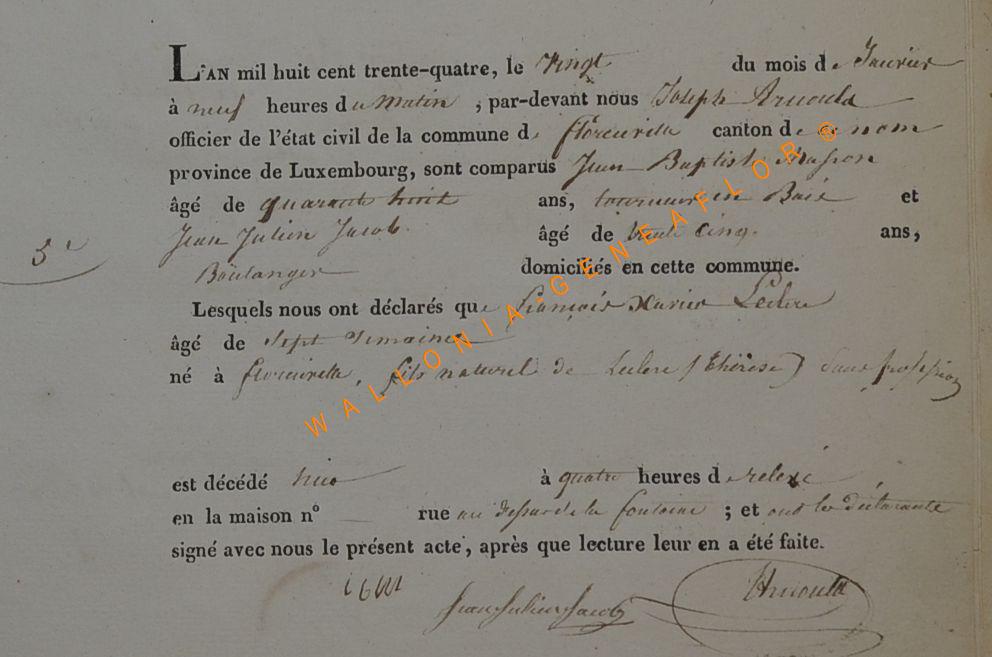 L'AN mil huit cent trente-quatre, le vingt du mois de Janvier
à neuf heures du matin, par-devant nous Joseph Arnould
officier de l'état civil de la commune de florenville canton de ce nom
province de Luxembourg, sont comparus Jean Baptiste Masson
âgé de quarante huit ans, tourneur en Bois et
Jean Julien Jacob. âgé de trente cinq. ans,
3e
Boulanger domiciliés en cette commune.
Lesquels nous ont déclarés que françois Xavier Leclere
âgé de Sept Semaines
né à florenville, fils naturel de Leclere (Thérèse) Sans profession
est décédé hier à quatre heures de relevé
en la maison n° rue au dessus de la fontaine ; et ont les déclarants
signé avec nous le présent acte, après que lecture leur en a été faite.
Jean Julien Jacob Arnould
WALLONIA-GENEAFLOR©